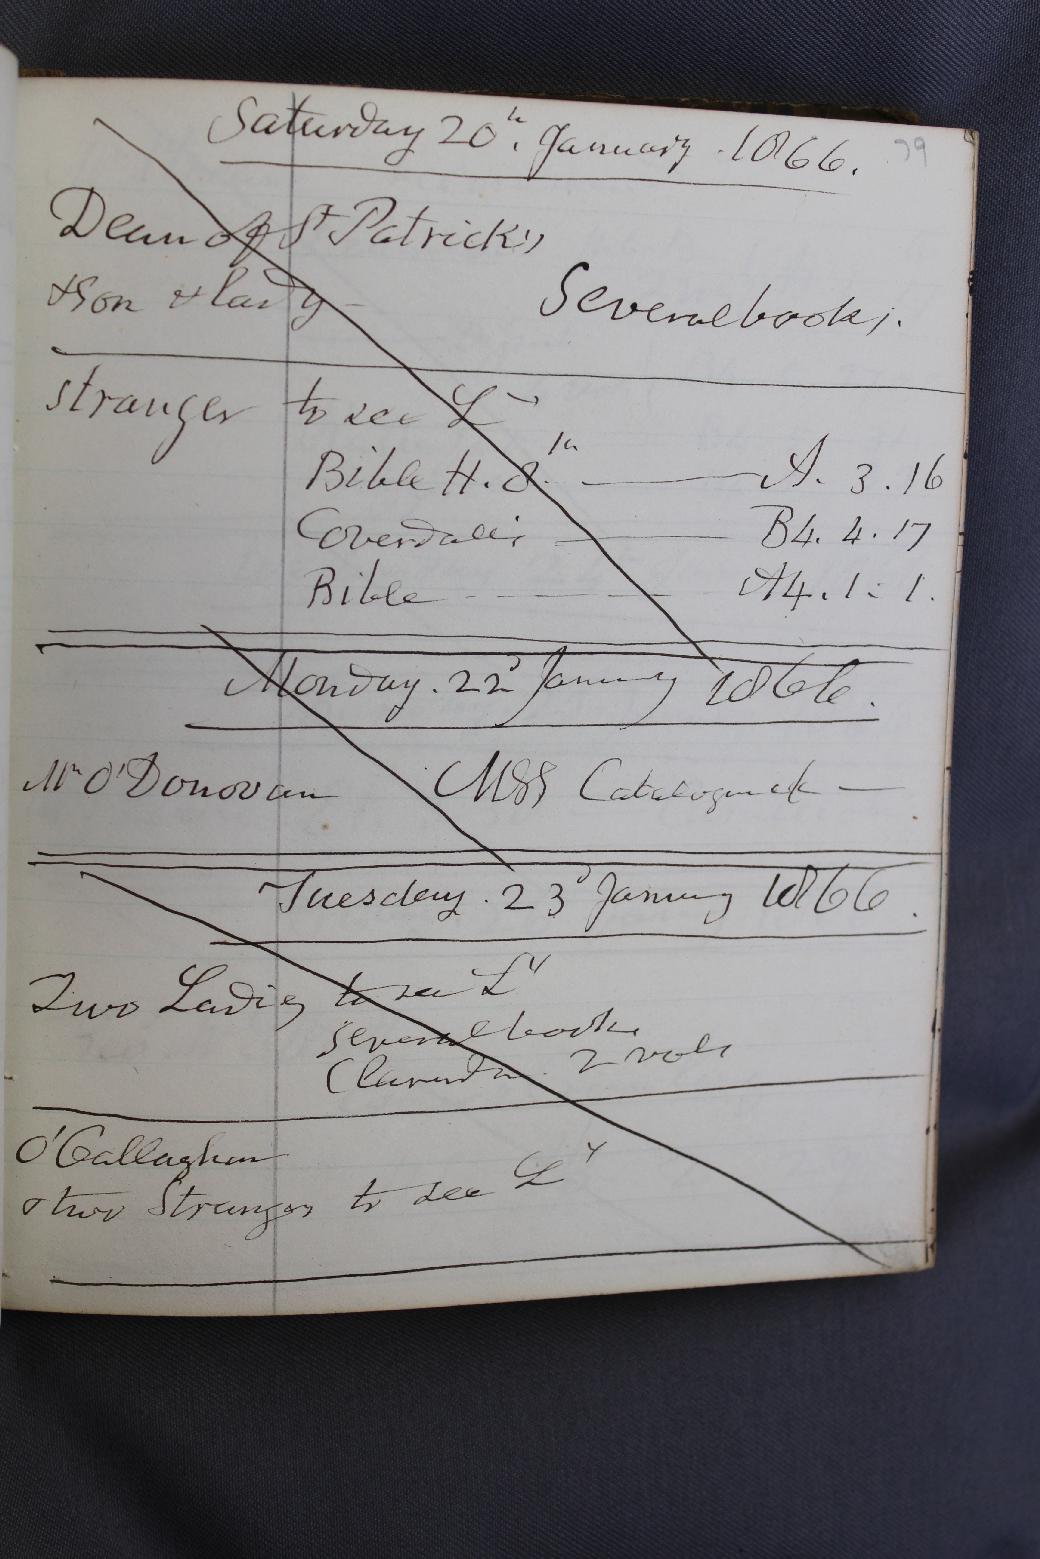 Saturday 20th. January. 1866.
79
Dean of St Patrick's
& Son & lady -
Several books.
Stranger to see Ly
Bible H. 8th. — A. 3. 16
Coverdale's — B4. 4. 17
Bible - - - A4. 1. 1.
Monday. 22d January 1866.
Mr O'Donovan MSS Catalogue &c —
Tuesday. 23d January 1866.
Two Ladies to see Ly
Several books
Clarendon. 2 vols
O'Callaghan
& two Strangers to see Ly